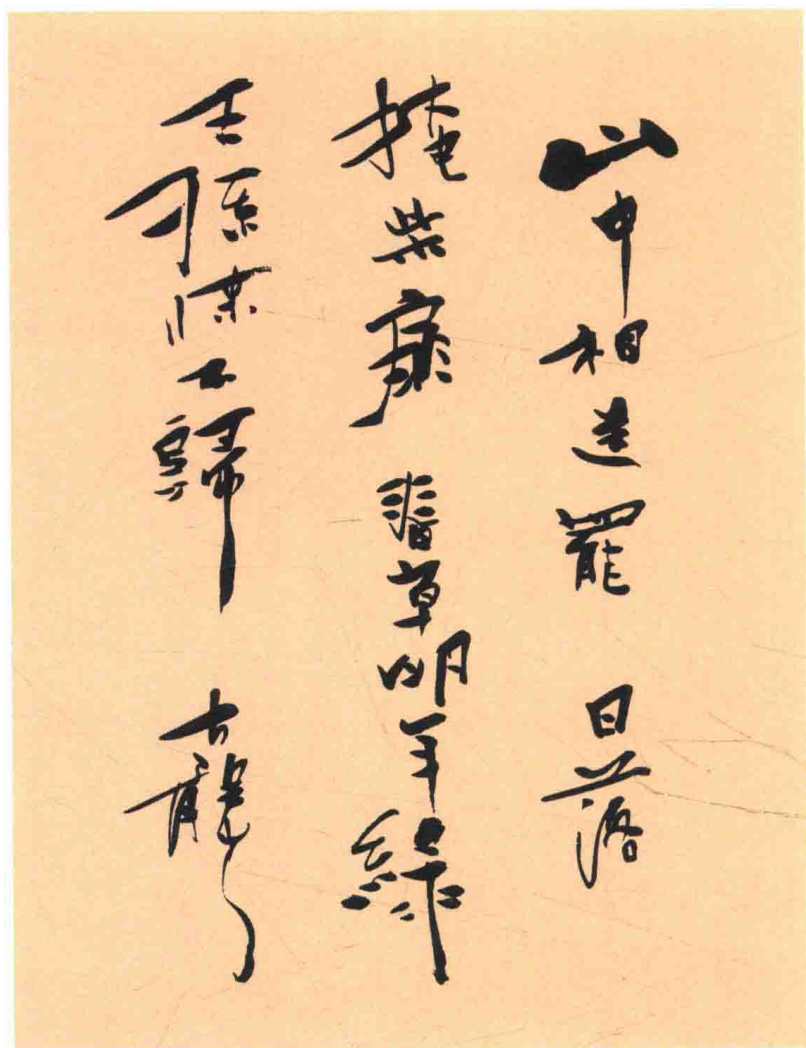 山中相送罷 日落
掩柴扉 春草明年綠
王孫歸不歸 古龍